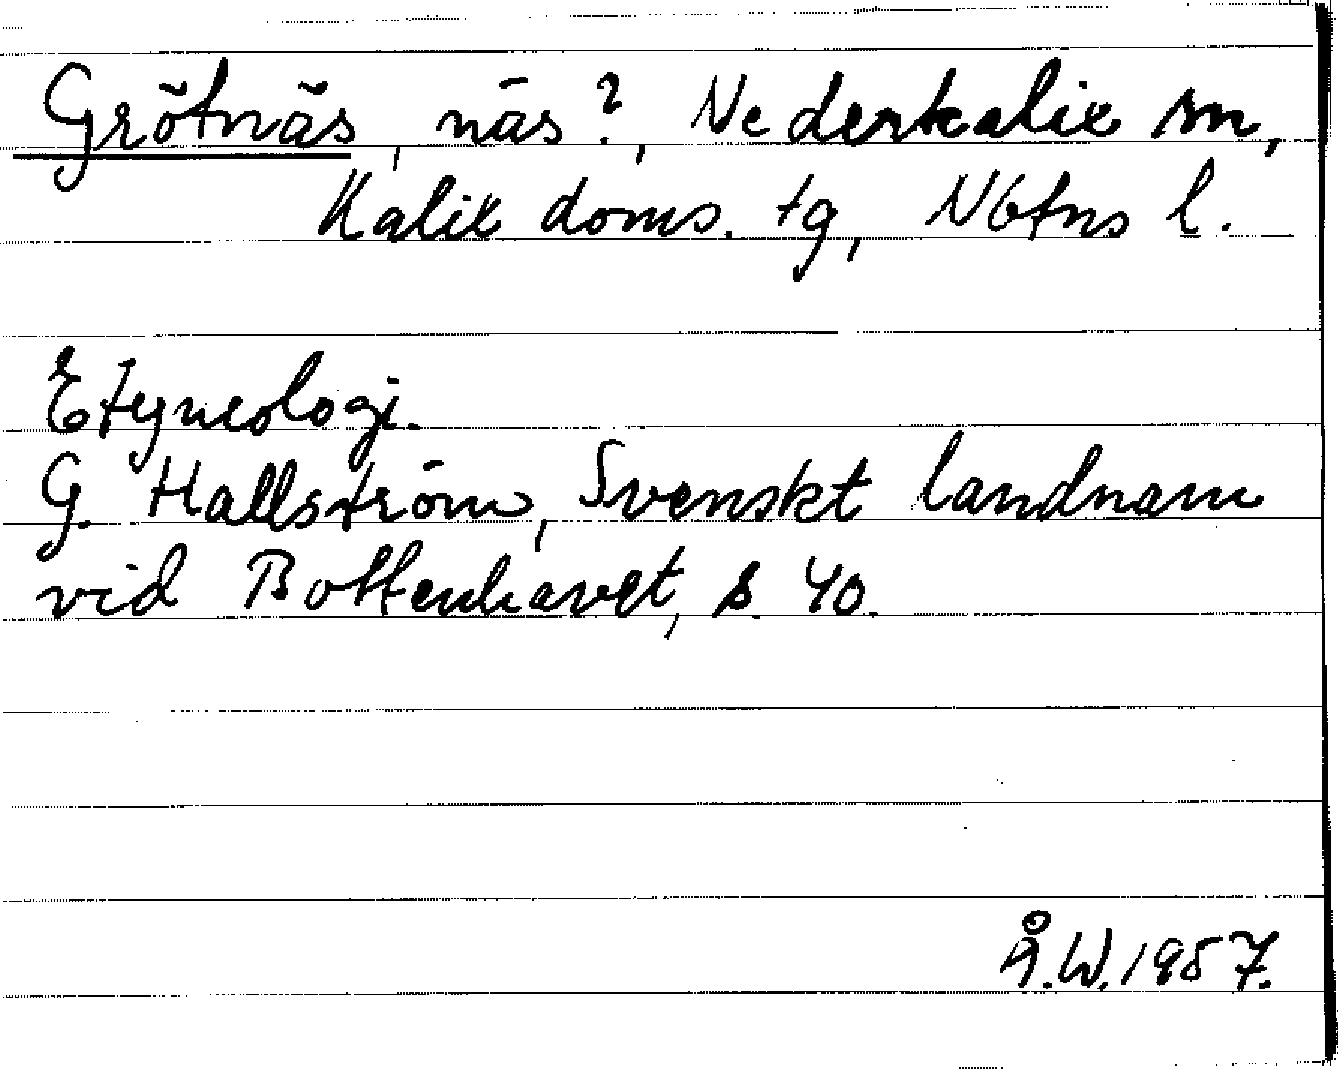 Grötnäs, näs?, Nederkalix sn,
Kalix doms. tg, Nbtns l.
Etymologi.
G. Hallström, Svenskt landnam
vid Bottenhavet, s. 40.
Å.W. 1957.